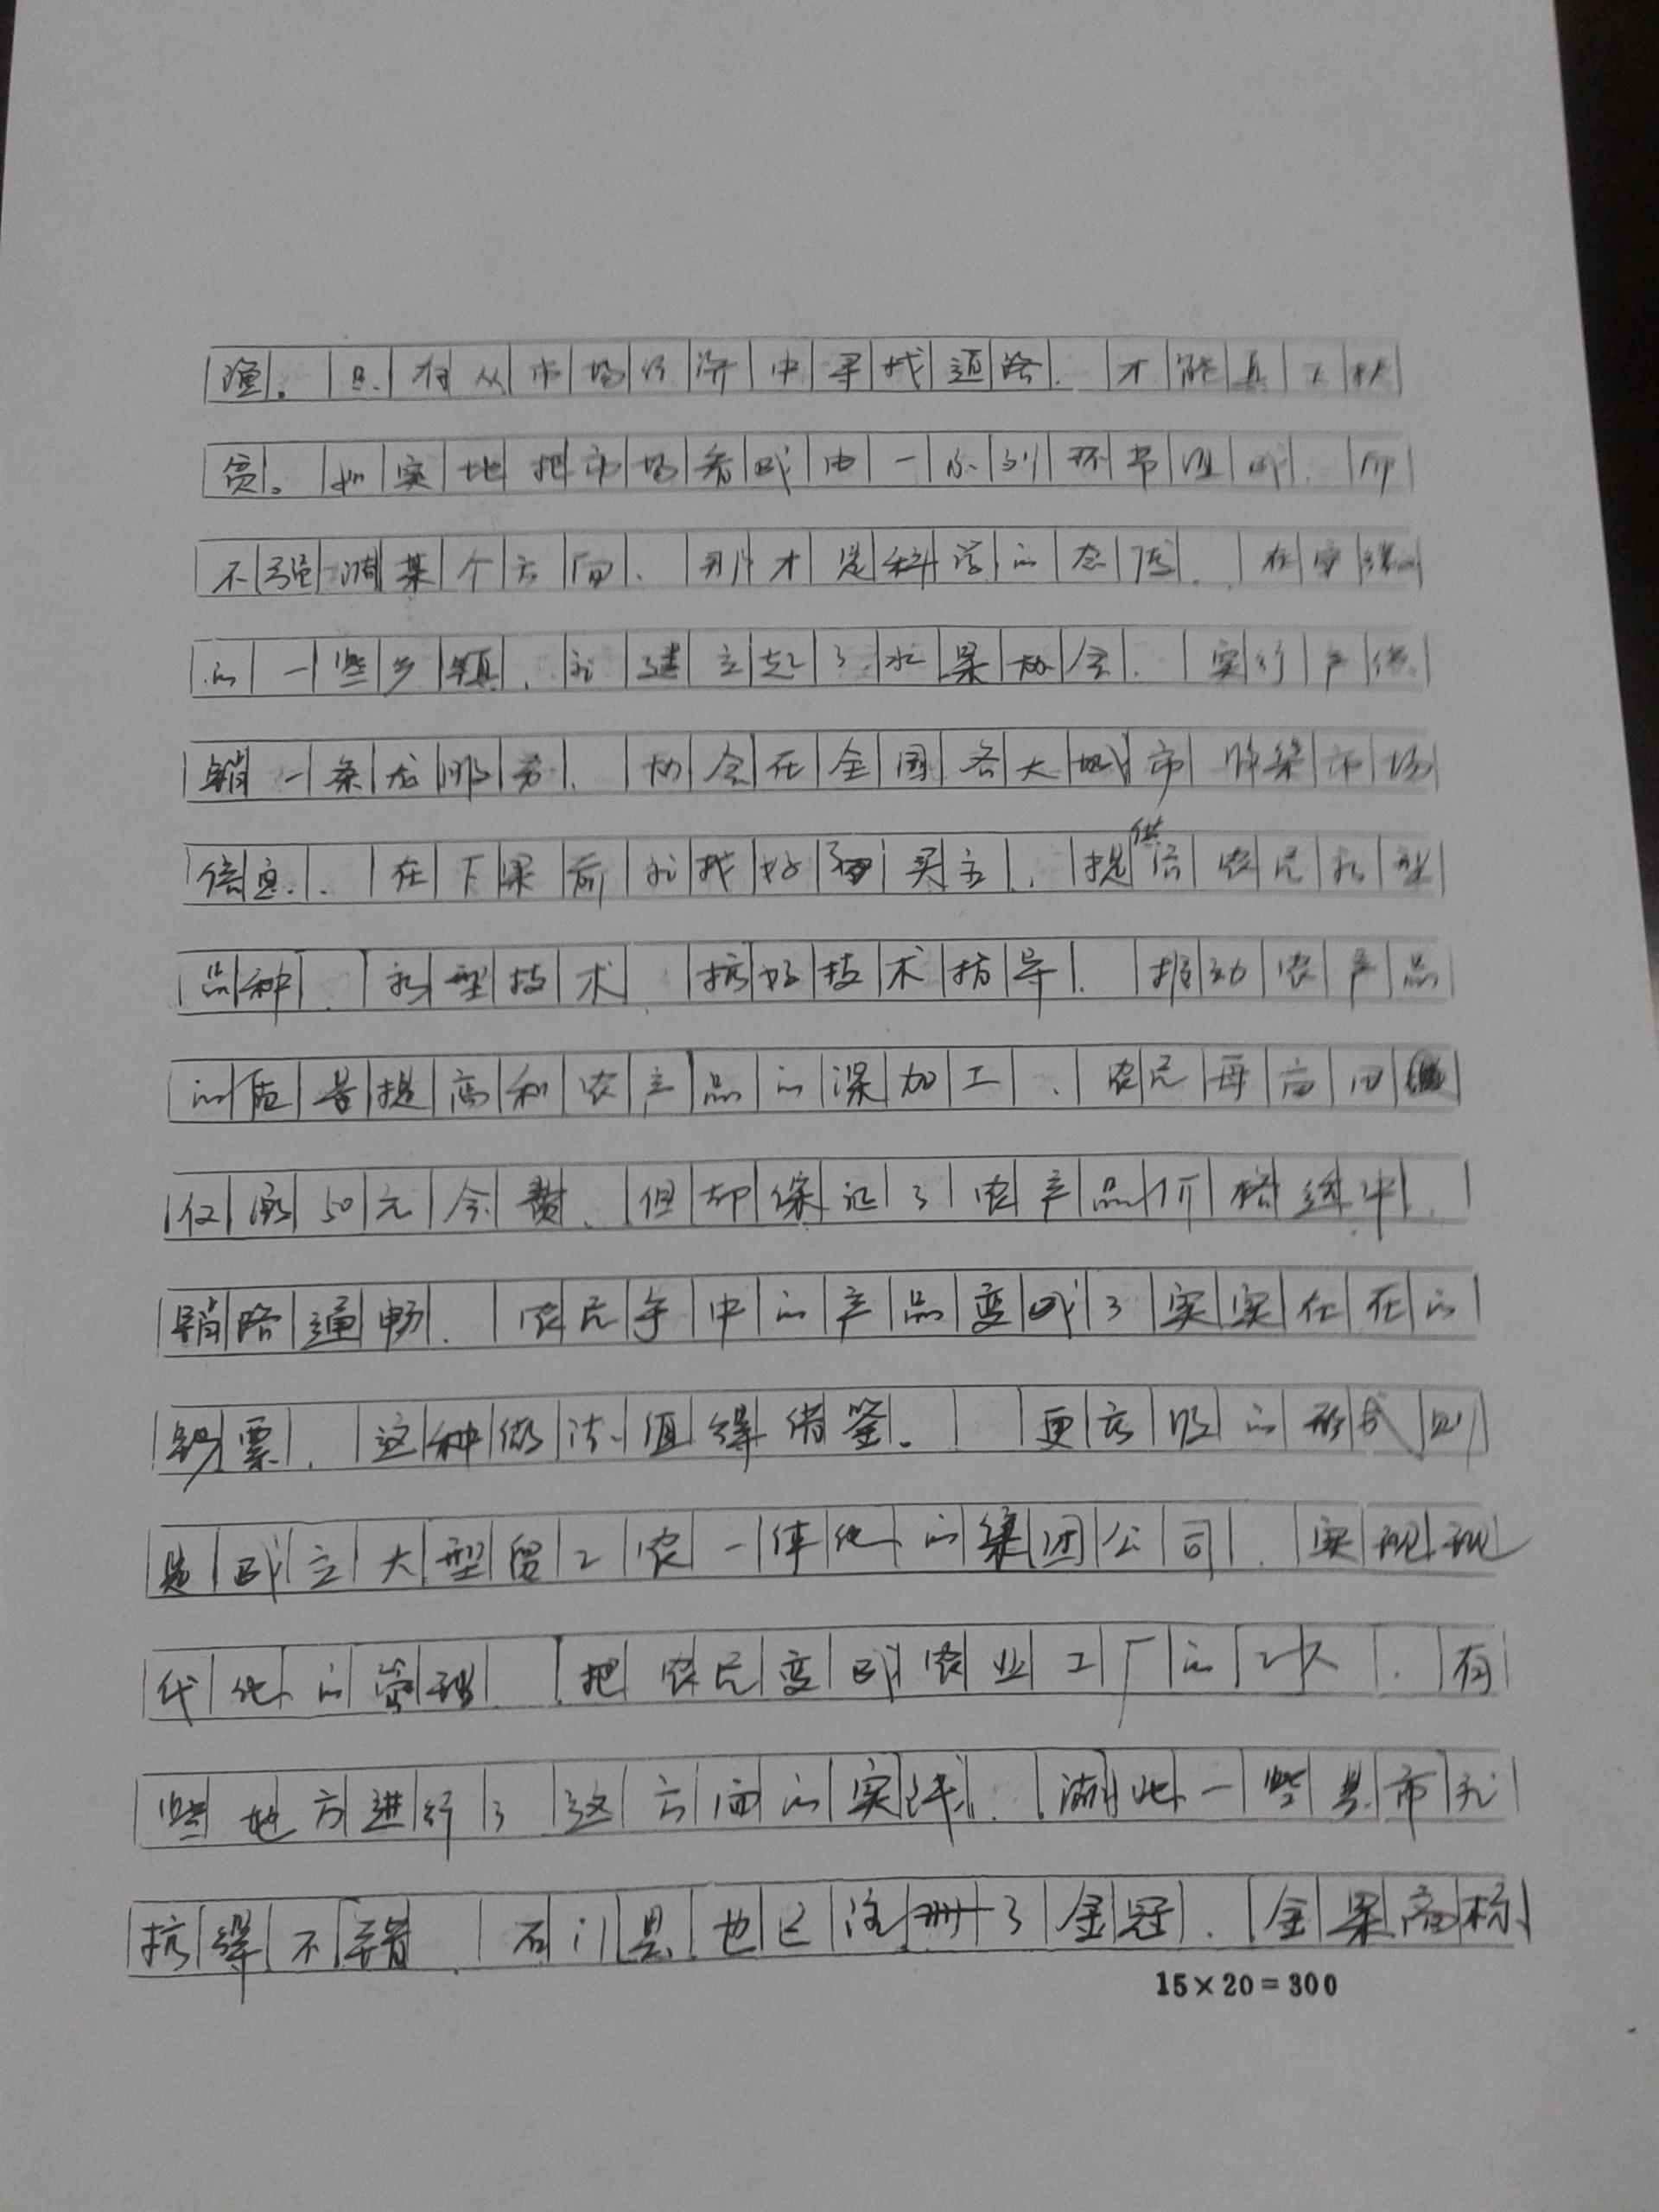 疃。只有从市场经济中寻找道路，才能真正扶
贫。如实地把市场看成由一系列环节组成，而
不强调某个方面，那才是科学的态度。在安徽
的一些乡镇，就建立起了水果协会，实行产供
销一条龙服务，协会在全国各大城市收集市场
信息，在下果前就找好了买主，提供给农民新型
品种、新型技术，搞好技术指导，推动农产品
的质量提高和农产品的深加工，农民每亩田
仅缴50元会费，但却保证了农产品价格适中，
销路通畅，农民手中的产品变成了实实在在的
钞票，这种做法值得借鉴。更高级的形式则
是成立大型贸工农一体化的集团公司，实现现
代化的管理，把农民变成农业工厂的工人，有
些地方进行了这方面的实践，湖北一些县市就
搞得不错，石门县也已注册了金冠、金果商标
15×20=300